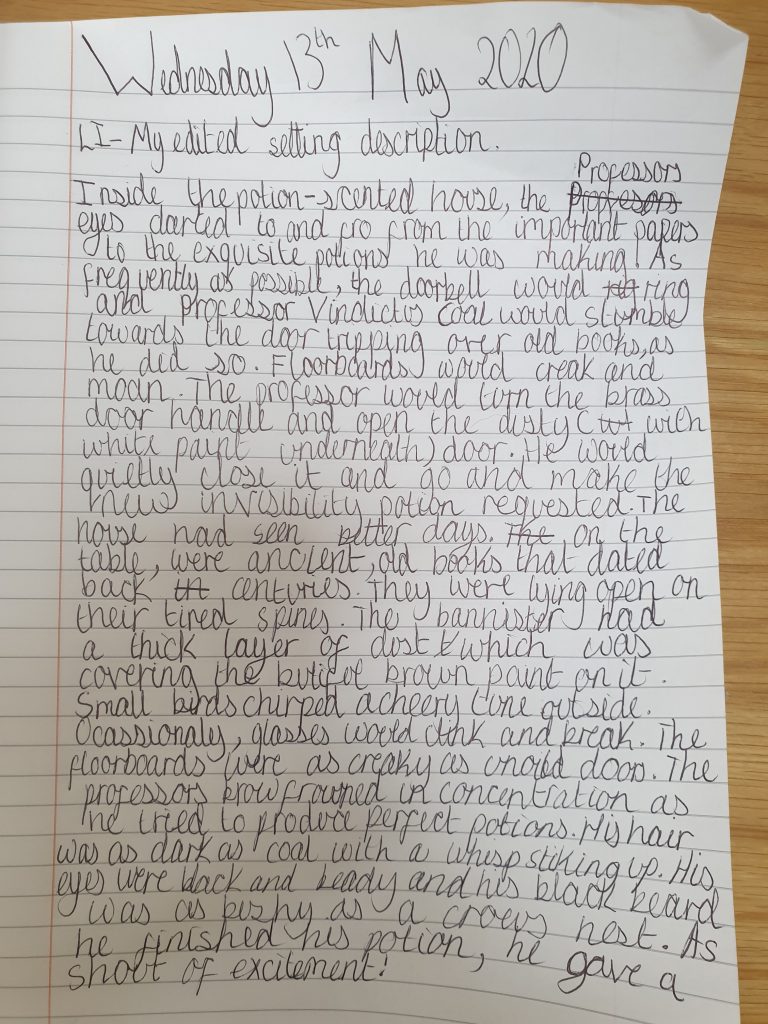 Wednesday 13th May 2020
LI- My edited setting description.
Professors
Inside the potion-scented house, the Professors
eyes darted to and fro from the important papers
to the exquisite potions he was making! As
freqvently as possible, the doorbell would ring
and professor Vindictus Coal would stumble
towards the door tripping over old books, as
he did so. Floorboards would creak and
moan. The professor would turn the brass
door handle and open the dusty (with
white paint underneath) door. He would
quietly close it and go and make the
new invisibility potion requested. The
house had seen better days. The on the
table, were ancient, old books that dated
back centuries. They were lying open on
their tired spines. The bannister had
a thick layer of dust which was
covering the butiful brown paint on it.
Small birds chirped a cheery tune outside.
Ocassionaly, glasses would clink and break. The
floorboards were as creaky as an old door. The
professors brow frowned in concentration as
he tried to produce perfect potions. His hair
was as dark as coal with a whisp stiking up. His
eyes were black and beady and his black beard
was as bushy as a crows nest. As
he finished his potion, he gave a
shout of excitement!